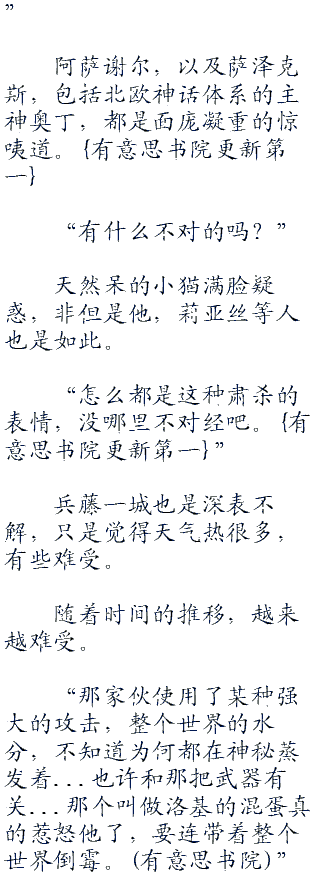 ”
阿萨谢尔，以及萨泽克
斯，包括北欧神话体系的主
神奥丁，都是面庞凝重的惊
咦道。{有意思书院更新第
一}
“有什么不对的吗？”
天然呆的小猫满脸疑
惑，非但是他，莉亚丝等人
也是如此。
“怎么都是这种肃杀的
表情，没哪里不对经吧。{有
意思书院更新第一}”
兵藤一城也是深表不
解，只是觉得天气热很多，
有些难受。
随着时间的推移，越来
越难受。
“那家伙使用了某种强
大的攻击，整个世界的水
分，不知道为何都在神秘蒸
发着...也许和那把武器有
关...那个叫做洛基的混蛋真
的惹怒他了，要连带着整个
世界倒霉。(有意思书院)”